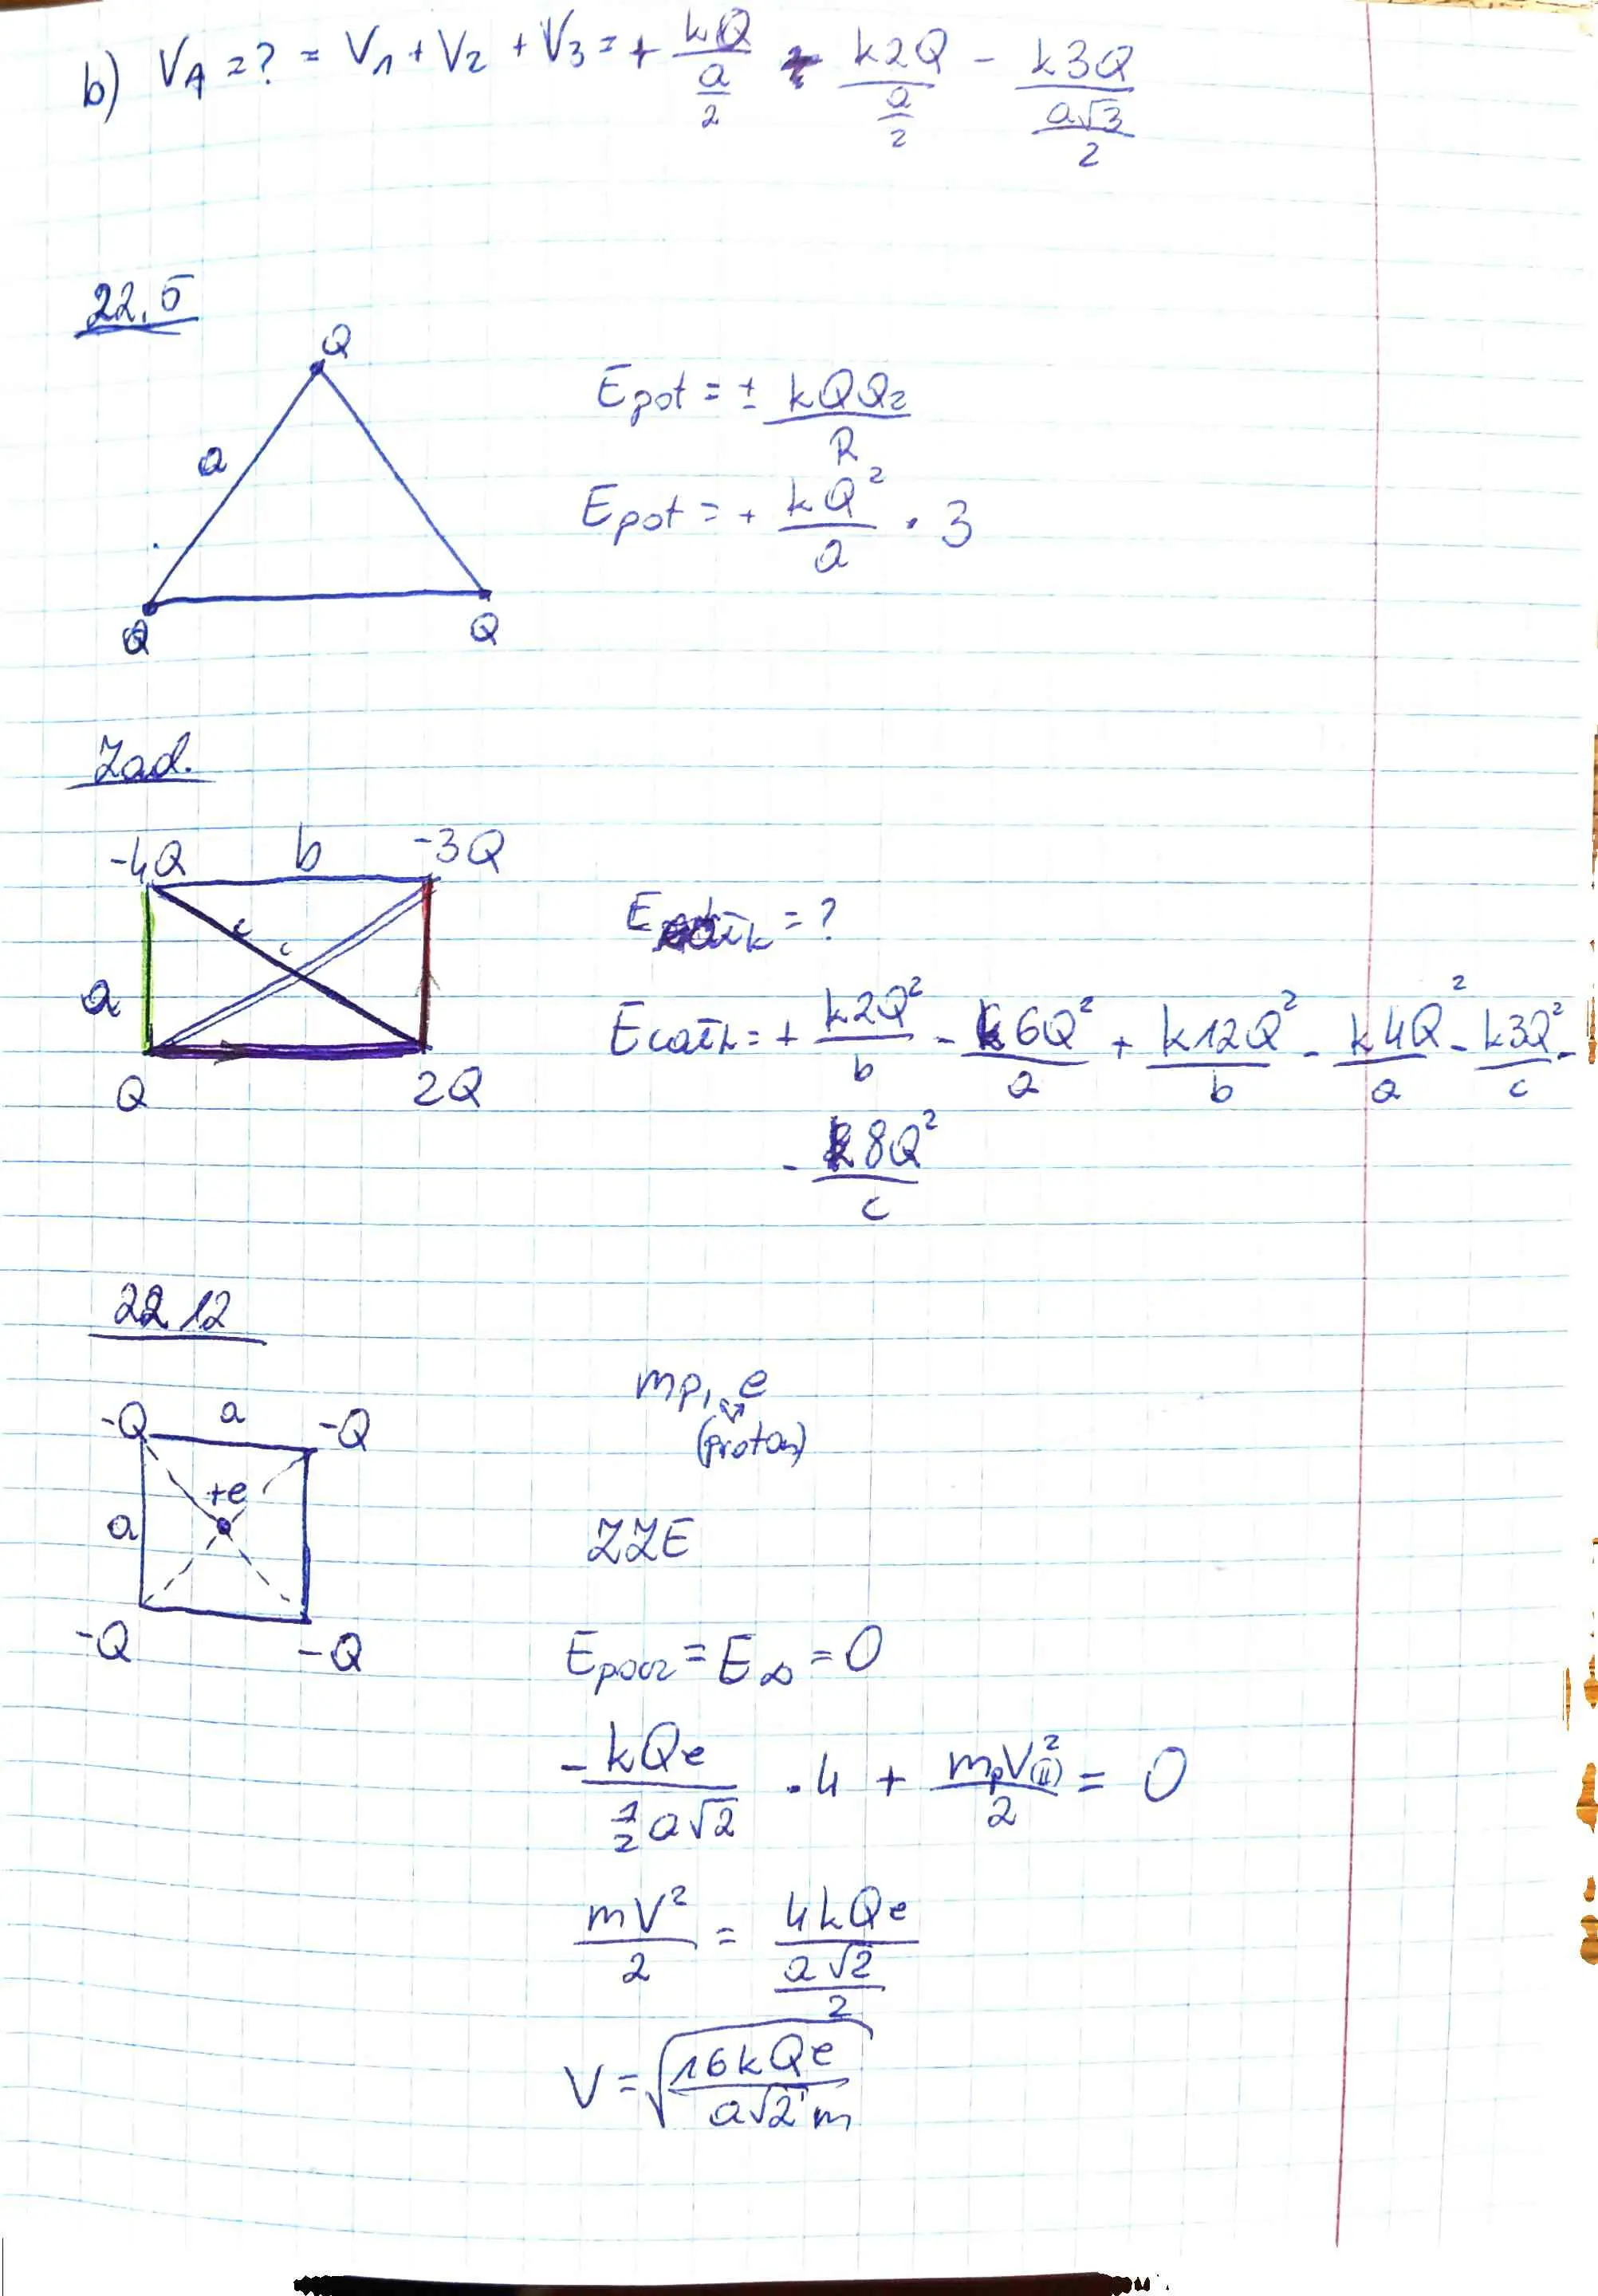 b) V_A = ? = V₁ + V₂ + V₃ = + kQ/(a/2) + k2Q/(a/2) - k3Q/(a√3/2)
22.5
Q
a
Q Q
Epot = ± kQQ₂/R
Epot = + kQ²/a · 3
Zad.
-4Q b -3Q
c c
a
Q 2Q
E całk = ?
E całk = + k2Q²/b - k6Q²/a + k12Q²/b - k4Q²/a - k3Q²/c -
- k8Q²/c
22.12
-Q a -Q
+e
a
-Q -Q
mp, e
(proton)
ZZE
E pocz = E∞ = 0
- kQe/(½a√2) · 4 + mpV(II)²/2 = 0
mV²/2 = 4kQe/(a√2/2)
V = √(16kQe/(a√2 m))